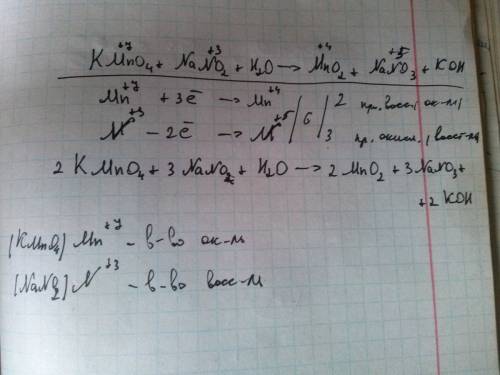 KMn⁺⁷O₄ + NaN⁺³O₂ + H₂O → Mn⁺⁴O₂ + NaN⁺⁵O₃ + KOH
Mn⁺⁷ + 3ē → Mn⁺⁴ | 6 | 2 пр. восст., ок-ль
N⁺³ − 2ē → N⁺⁵ | 3 пр. окисл., восст-ль
2 KMnO₄ + 3 NaNO₂ + H₂O → 2 MnO₂ + 3 NaNO₃ +
+ 2 KOH
[KMnO₄] Mn⁺⁷ – в-во ок-ль
[NaNO₂] N⁺³ – в-во восс-ль